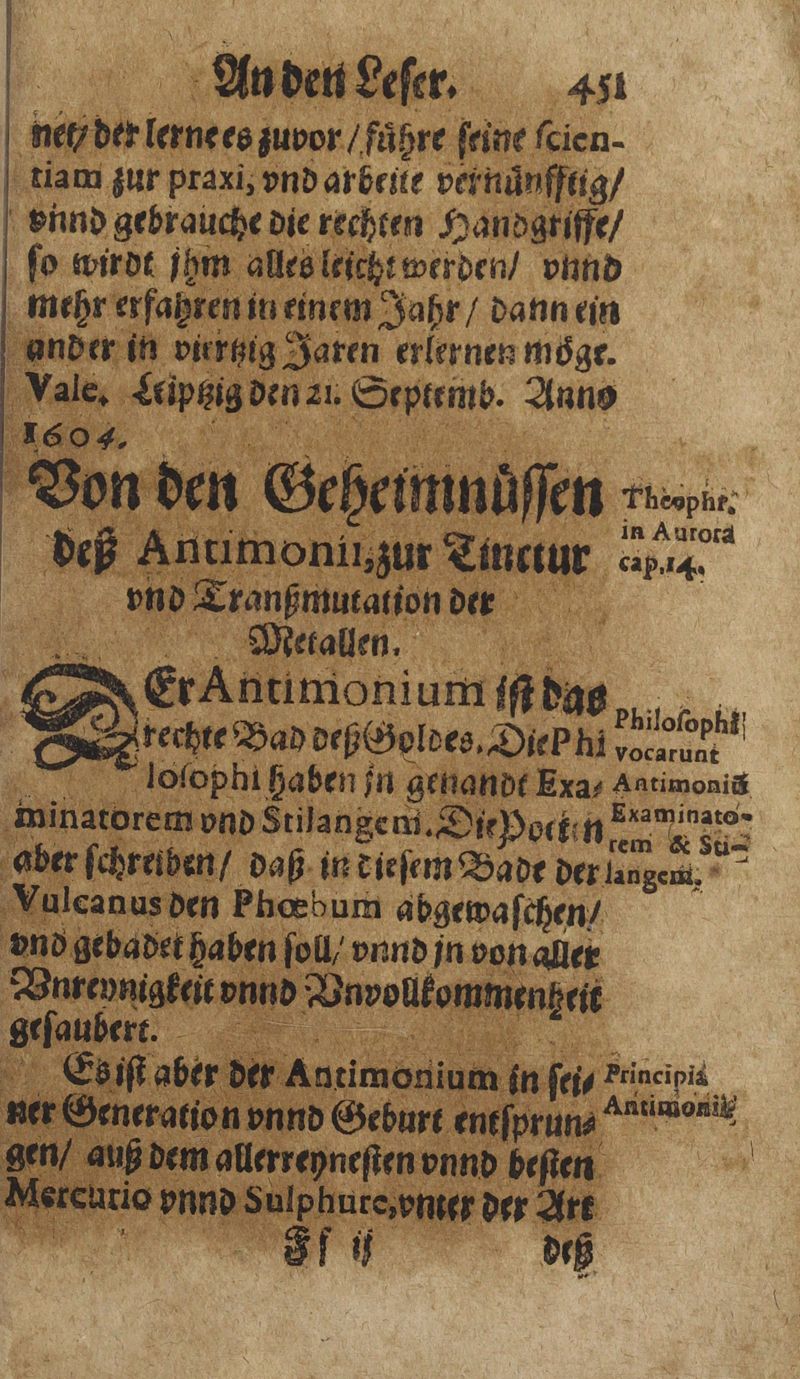 An den Leser. 451
net/ der lerne es zuvor / führe seine scien-
tiam zur praxi, vnd arbeite vernünfftig/
vnnd gebrauche die rechten Handgriffe/
so wirdt jhm alles leicht werden/ vnnd
mehr erfahren in einem Jahr / dann ein
ander in viertzig Jaren erlernen möge.
Vale. Leiptzig den 21. Septemb. Anno
1604.
Von den Geheimnüssen
deß Antimonii, zur Tinctur
vnd Tranßmutation der
Metallen.
Theophr.
in Aurorâ
cap. 14.
DEr Antimonium ist das
rechte Bad deß Goldes. Die Phi
losophi haben jn genandt Exa-
minatorem vnd Stilangem. Die Poeten
aber schreiben/ daß in diesem Bade der
Vulcanus den Phœbum abgewaschen/
vnd gebadet haben soll/ vnnd jn von aller
Vnreynigkeit vnnd Vnvollkommenheit
gesaubert.
Philosophi
vocarunt
Antimoniũ
Examinato-
rem & Sti-
langem.
Es ist aber der Antimonium in sei-
ner Generation vnnd Geburt entsprun-
gen/ auß dem allerreynesten vnnd besten
Mercurio vnnd Sulphure, vnter der Art
Principia
Antimonii.
Ff ij deß